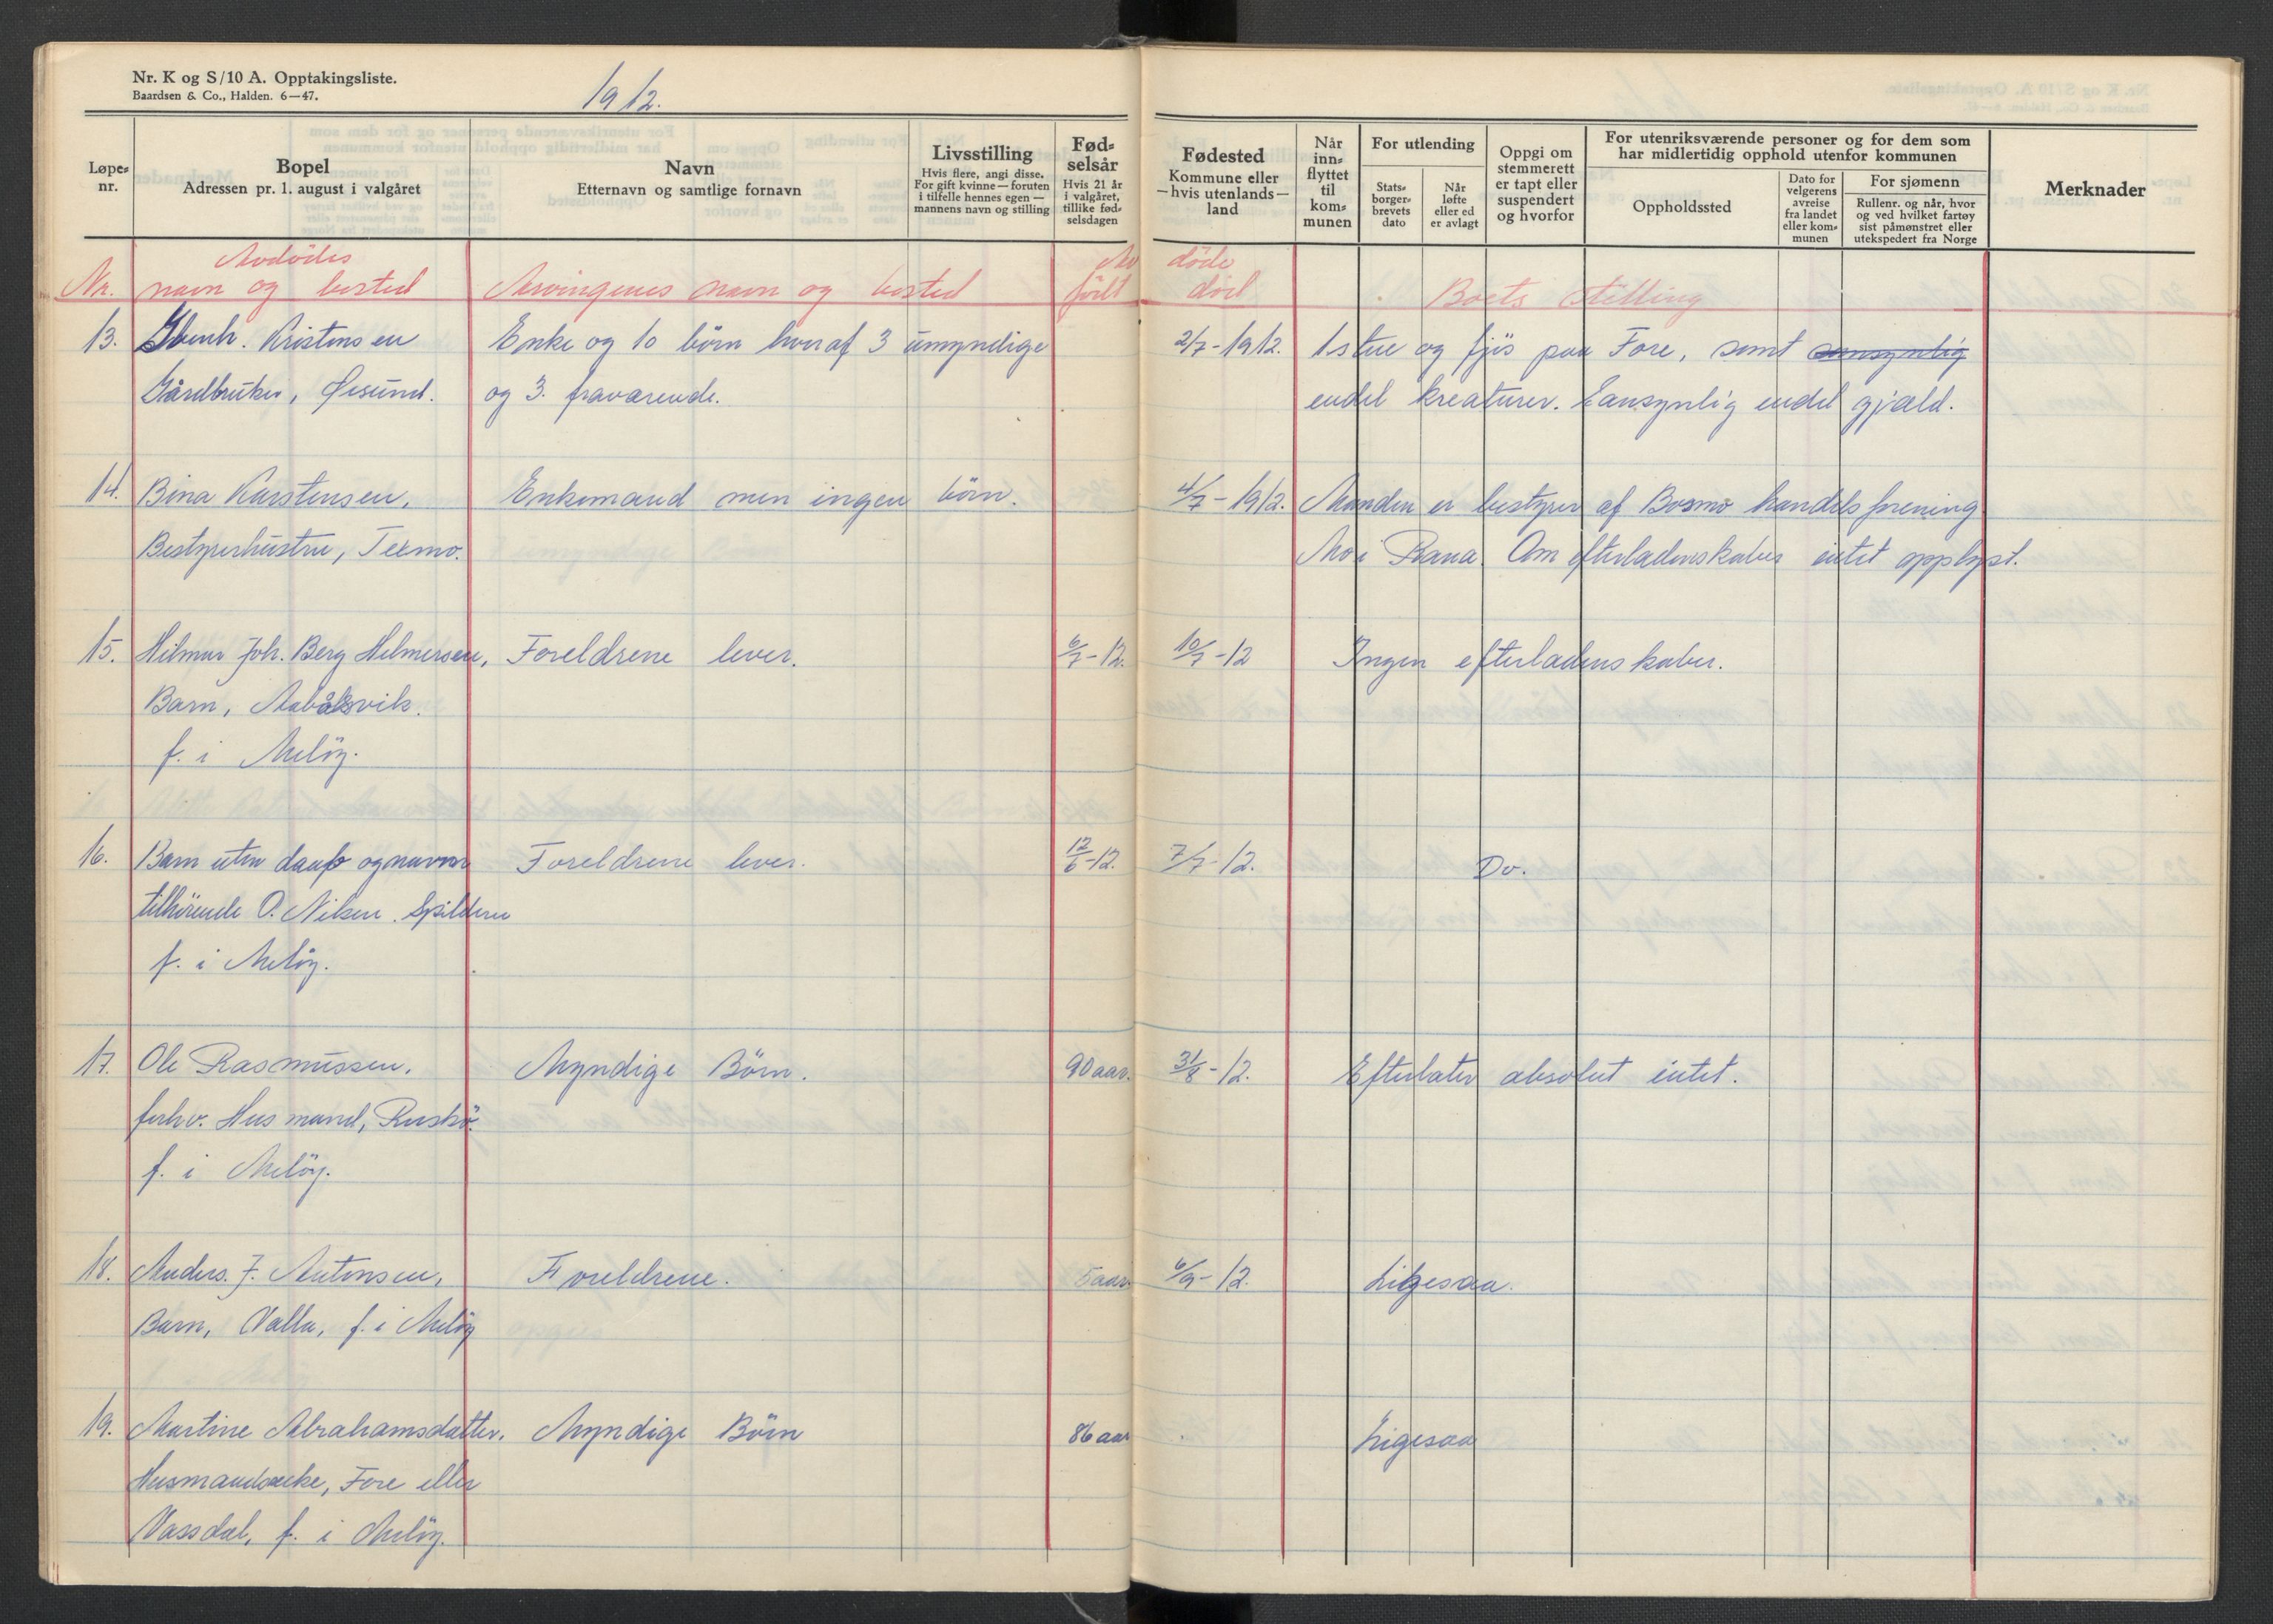 Nr. K og S/10 A. Opptakingsliste.
Baardsen & Co., Halden. 6—47.
1912.
Løpe-
nr.
Bopel
Adressen pr. 1. august i valgåret
Navn
Etternavn og samtlige fornavn
Livsstilling
Hvis flere, angi disse.
For gift kvinne — foruten
i tilfelle hennes egen —
mannens navn og stilling
Fød-
selsår
Hvis 21 år
i valgåret,
tillike fød-
selsdagen
Fødested
Kommune eller
—hvis utenlands—
land
Når
inn-
flyttet
til
kom-
munen
For utlending
Stats-
borger-
brevets
dato
Når
løfte
eller ed
er avlagt
Oppgi om
stemmerett
er tapt eller
suspendert
og hvorfor
For utenriksværende personer og for dem som
har midlertidig opphold utenfor kommunen
Oppholdssted
Dato for
velgerens
avreise
fra landet
eller kom-
munen
For sjømenn
Rullenr. og når, hvor
og ved hvilket fartøy
sist påmønstret eller
utekspedert fra Norge
Merknader
Avdødes
Nr. navn og bosted Arvingenes navn og bosted
Av døde
født død Boets stilling
13. Kristensen Enke og 10 börn hvoraf 3 umyndige 2/7-1912. 1 stue og fjös paa Fore, samt sansynlig
Gårdbruker, Øesund. og 3 fraværende. endel kreaturer. Sansynlig endel gjæld.
14. Bina Karstensen, Enkemand men ingen börn. 4/7-1912. Manden er bestyrer af Bosmo handelsforening
Bestyrerhustru, Teksmo. Mo i Rana. Om efterladenskaber intet opplyst.
15. Hilmar Joh. Berg Helmersen, Foreldrene lever. 6/7-12. 10/7-12 Ingen efterladenskaber.
Barn, Aabåksvik.
f. i Melöy.
16. Barn uten daab og navn Foreldrene lever. 12/6-12. 7/7-12. Do.
tilhörende O. Nilsen. Spilderen
f. i Melöy.
17. Ole Rasmussen, Myndige Börn. 90 aar. 31/8-12. Efterlater absolut intet.
forhv. Husmand, Ruskö.
f. i Melöy.
18. Anders. J. Antonsen, Foreldrene. 5 aar. 6/9-12. Ligesaa.
Barn, Valla, f. i Melöy
19. Martine Abrahamsdatter, Myndige Börn 86 aar Ligesaa
Husmandsenke, Fore eller
Vassdal, f. i Melöy.